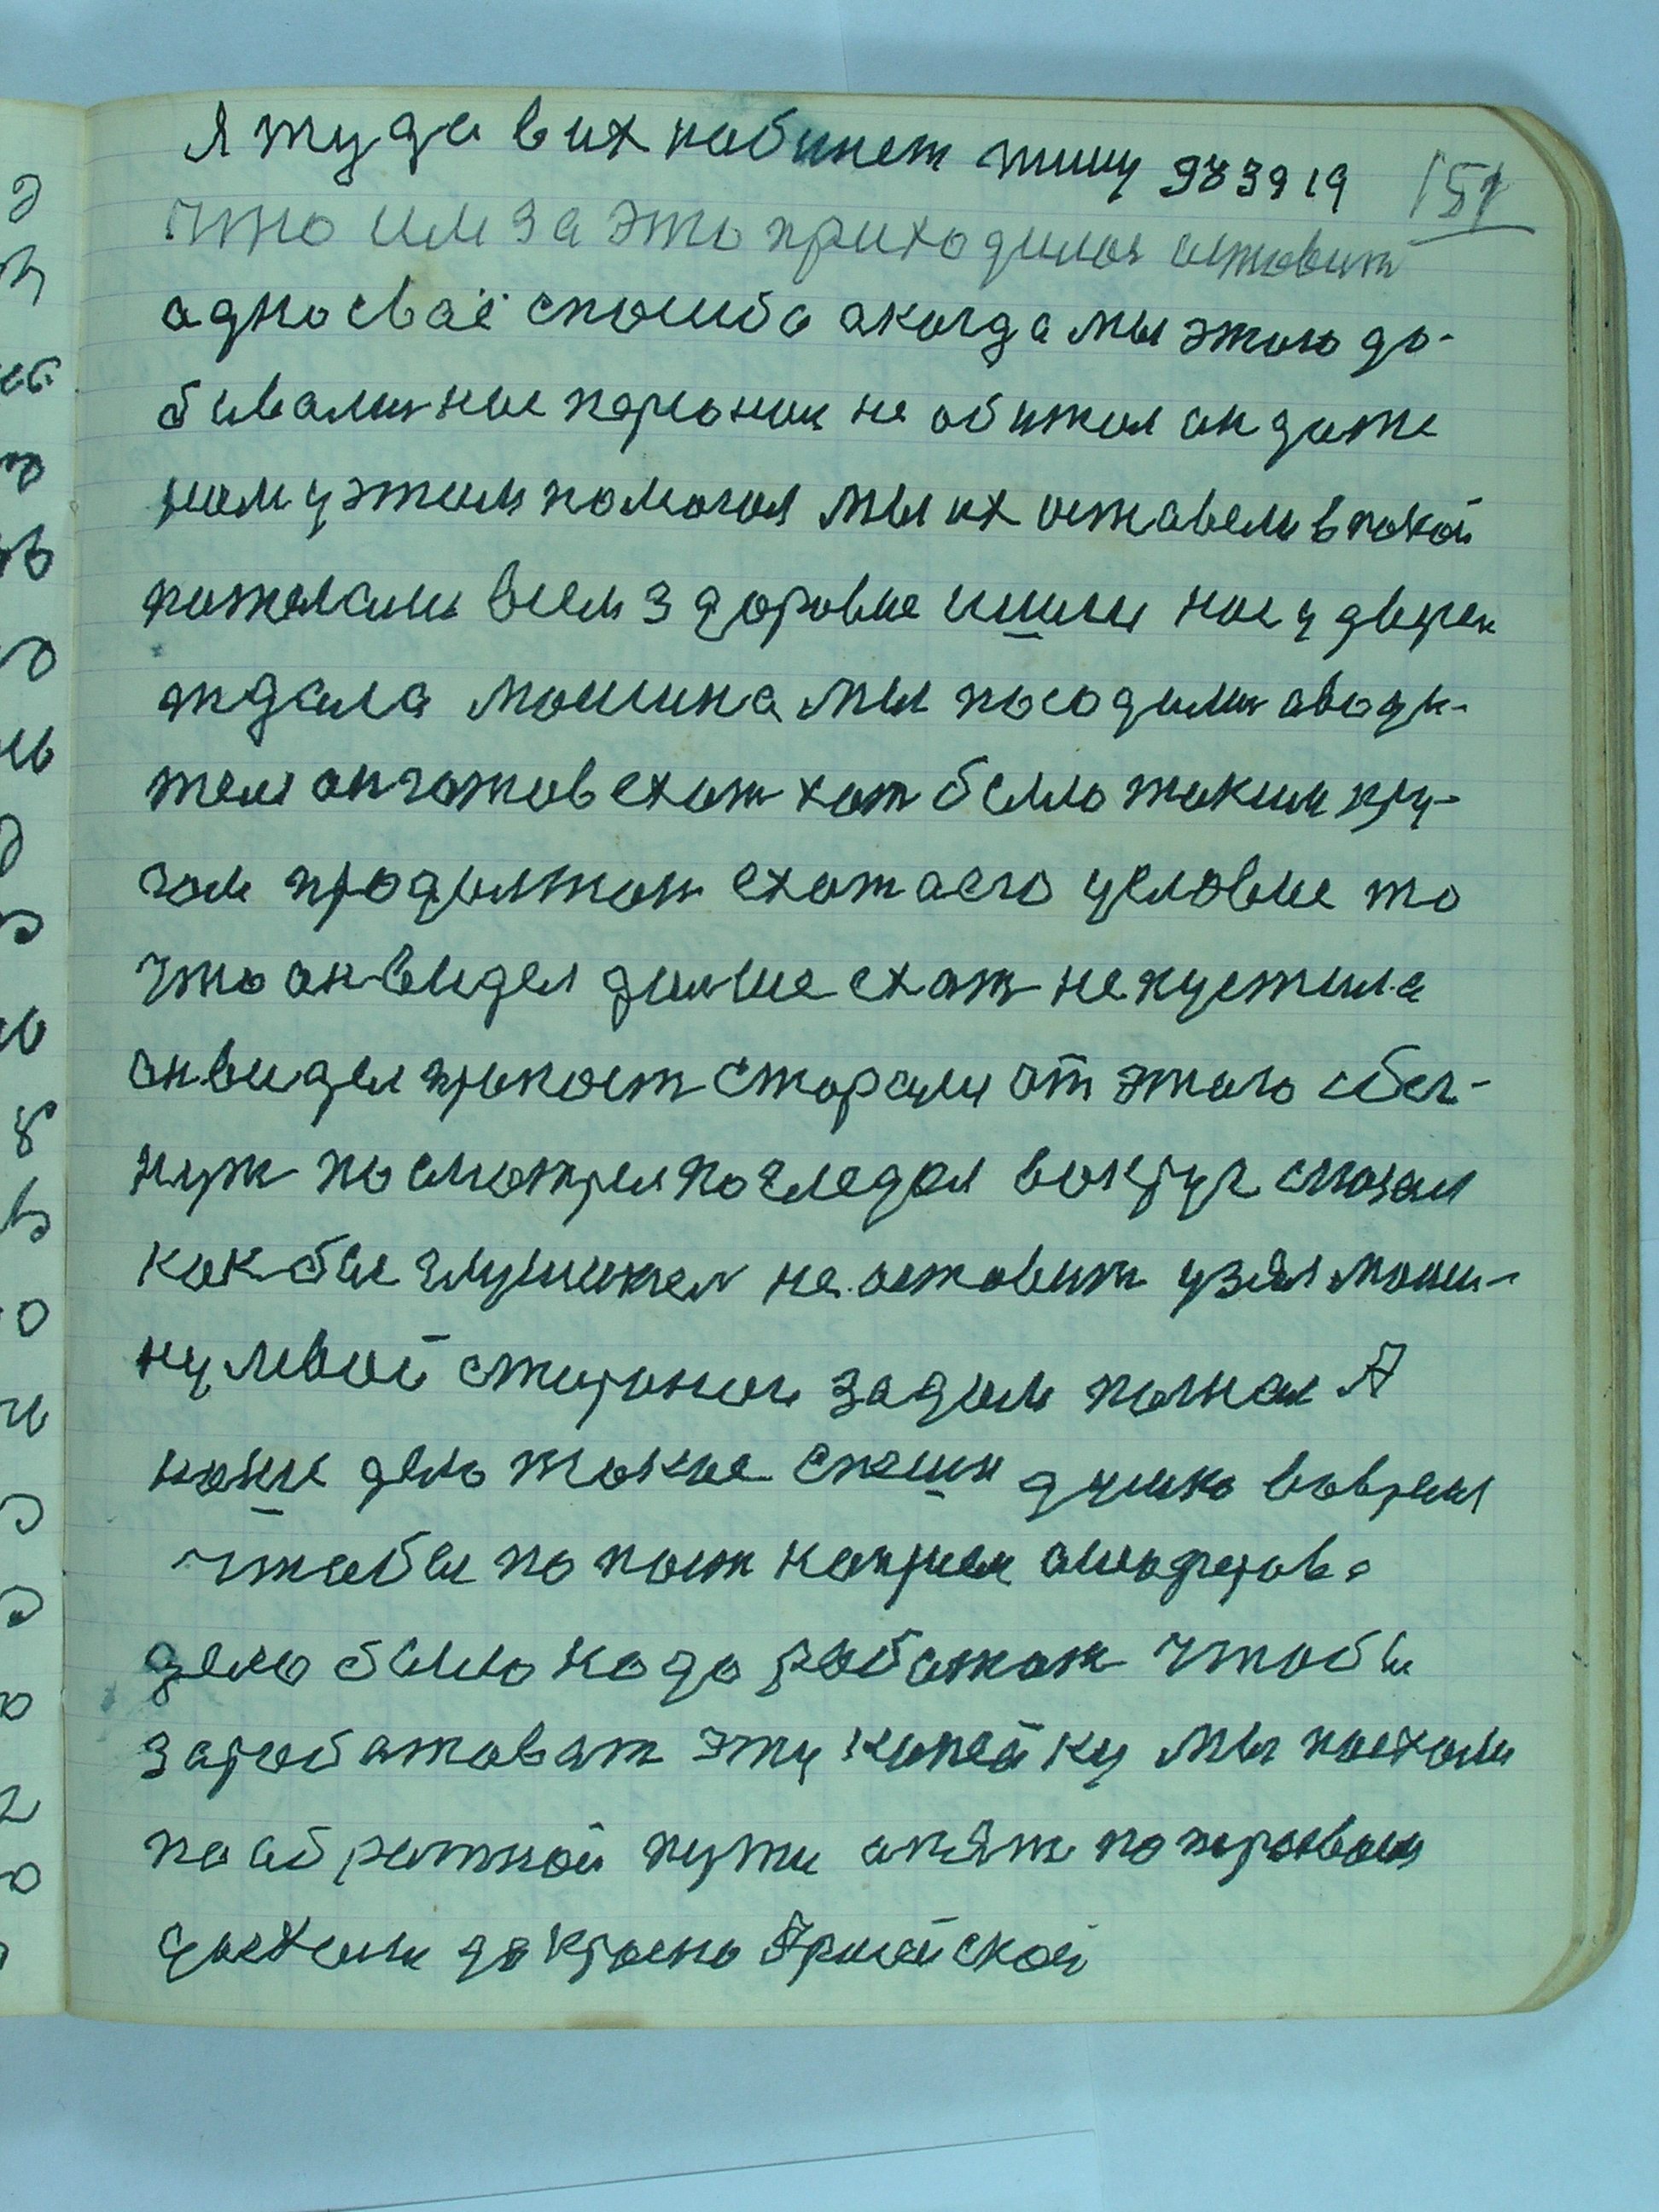 Я туда в их кабинет тину 983919 151
что им за это приходилос астовит
адно сваё спасибо а когда мы этого до-
бивалис нас персонии не обижал он даже
нам у этим помогал мы их оставели в покой
пожелали всем здоровие и шли нас у двереи
ждала мошина мы посодилис а води-
тел он готов ехат хот было таким кру-
гом продолжат ехат а его условие то
что он видел далше ехат не пустила
он видел пропост старалс от этого избег-
нут посмотрел погледел вокруг сказал
как бы глушител не оставит узял моши-
ну левой стороной задом погнал А
наше дело такое спеши душко вовремя
чтобы попост
дело было надо работат чтобы
заработоват эту копейку мы поехали
по обратной пути опят по прозвом
уехали до красно Армейской